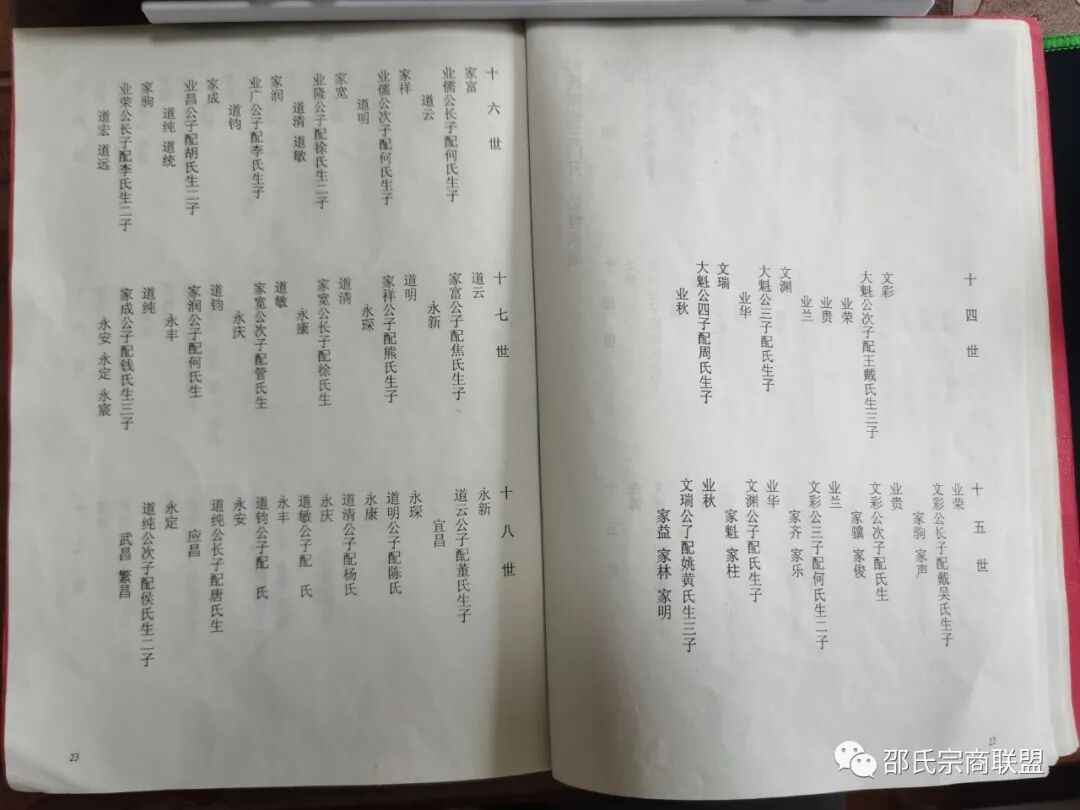 十四世
文彩
大魁公次子配王戴氏生三子
业荣
业贵
业兰
文渊
大魁公三子配氏生子
业华
文瑞
大魁公四子配周氏生子
业秋
十五世
业荣
文彩公长子配戴吴氏生子
家驹 家声
业贵
文彩公次子配氏生
家骥 家俊
业兰
文彩公三子配何氏生二子
家齐 家乐
业华
文渊公子配氏生子
家魁 家柱
业秋
文瑞公了配姚黄氏生三子
家益 家林 家明
22
十六世
家富
业儒公长子配何氏生子
道云
家祥
业儒公次子配何氏生子
道明
家宽
业隆公子配徐氏生二子
道清 道敏
家润
业广公子配李氏生子
道钧
家成
业昌公子配胡氏生二子
道纯 道统
家驹
业荣公长子配李氏生二子
道宏 道远
十七世
道云
家富公子配焦氏生子
永新
道明
家祥公子配熊氏生子
永琛
道清
家宽公长子配徐氏生
永康
道敏
家宽公次子配管氏生
永庆
道钧
家润公子配何氏生
永丰
道纯
家成公子配钱氏生三子
永安 永定 永宸
十八世
永新
道云公子配董氏生子
宜昌
永琛
道明公子配陈氏
永康
道清公子配杨氏
永庆
道敏公子配 氏
永丰
道钧公子配 氏
永安
道纯公长子配唐氏生
应昌
永定
道纯公次子配侯氏生二子
武昌 繁昌
23
邵氏宗商联盟